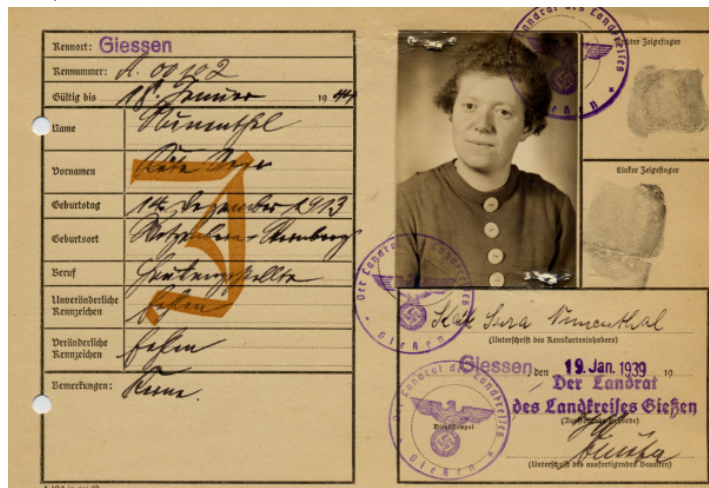 Kennort: Giessen
Kennummer: A. 00102
Gültig bis 18. Januar 1944
Name
Vornamen Käte Sara
Geburtstag 14. Dezember 1913
Geburtsort
Beruf
Unveränderliche Kennzeichen fehlen
Veränderliche Kennzeichen fehlen
Bemerkungen: Keine.
J
Der Landrat des Landkreises Gießen
Rechter Zeigefinger
Linker Zeigefinger
Der Landrat des Landkreises Gießen
Sara
(Unterschrift des Kennkarteninhabers)
Giessen, den 19. Jan. 1939 19
Der Landrat
des Landkreises Gießen
(Ausfertigende Behörde)
Der Landrat des Landkreises Gießen
Dienststempel
(Unterschrift des ausfertigenden Beamten)